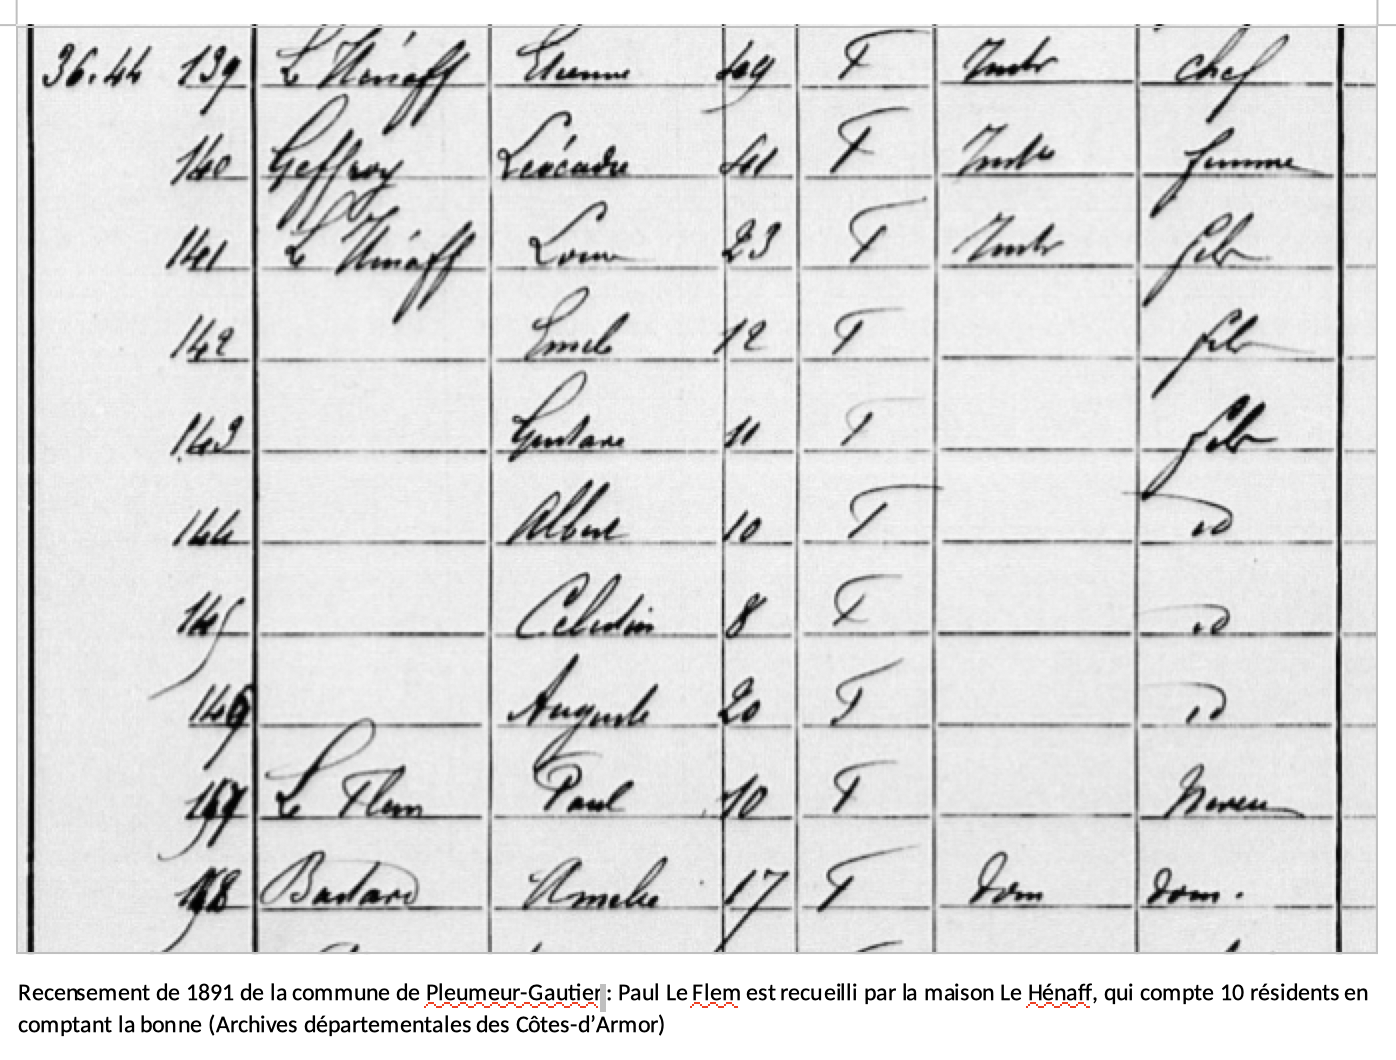 36.44 139 Le Hénaff Etienne 49 F Instr chef
140 Geffroy Léocadie 41 F Instr femme
141 Le Hénaff Louis 23 F Instr fils
142 Emile 12 F fils
143 Gustave 11 F fils
144 Albert 10 F id
145 Célestin 8 F id
146 Auguste 20 F id
147 Le Flem Paul 10 F Neveu
148 Bastard Amélie 17 F dom dom.
Recensement de 1891 de la commune de Pleumeur-Gautier : Paul Le Flem est recueilli par la maison Le Hénaff, qui compte 10 résidents en
comptant la bonne (Archives départementales des Côtes-d’Armor)